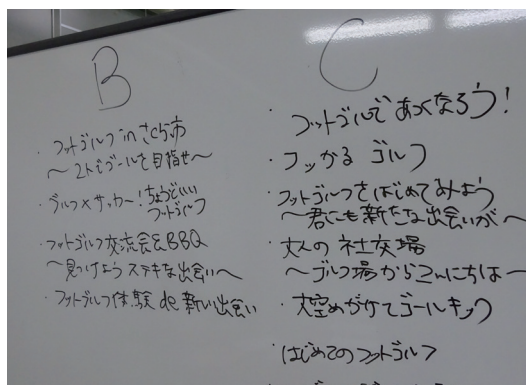 B
・フットゴルフ in さくら市
～2ndゴールを目指せ～
・ゴルフ×サッカー！ちょうどいい
フットゴルフ
・フットゴルフ交流会&BBQ
～見つけよう ステキな出会い～
・フットゴルフ体験 de 新しい出会い
C
・フットゴルフであつくなろう！
・フッかる ゴルフ
・フットゴルフをはじめてみよう
～君にも新たな出会いが～
・大人の社交場
～ゴルフ場からこんにちは～
・大空めがけてゴールキック
・はじめてのフットゴルフ